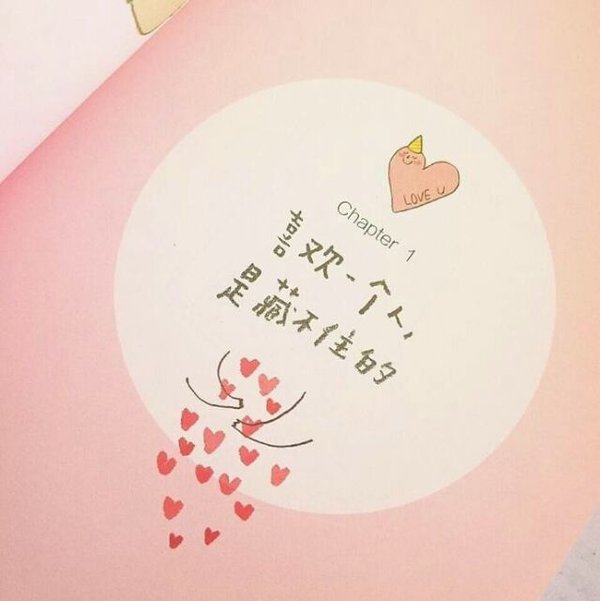 LOVE U
Chapter 1
喜欢一个人,
是藏不住的